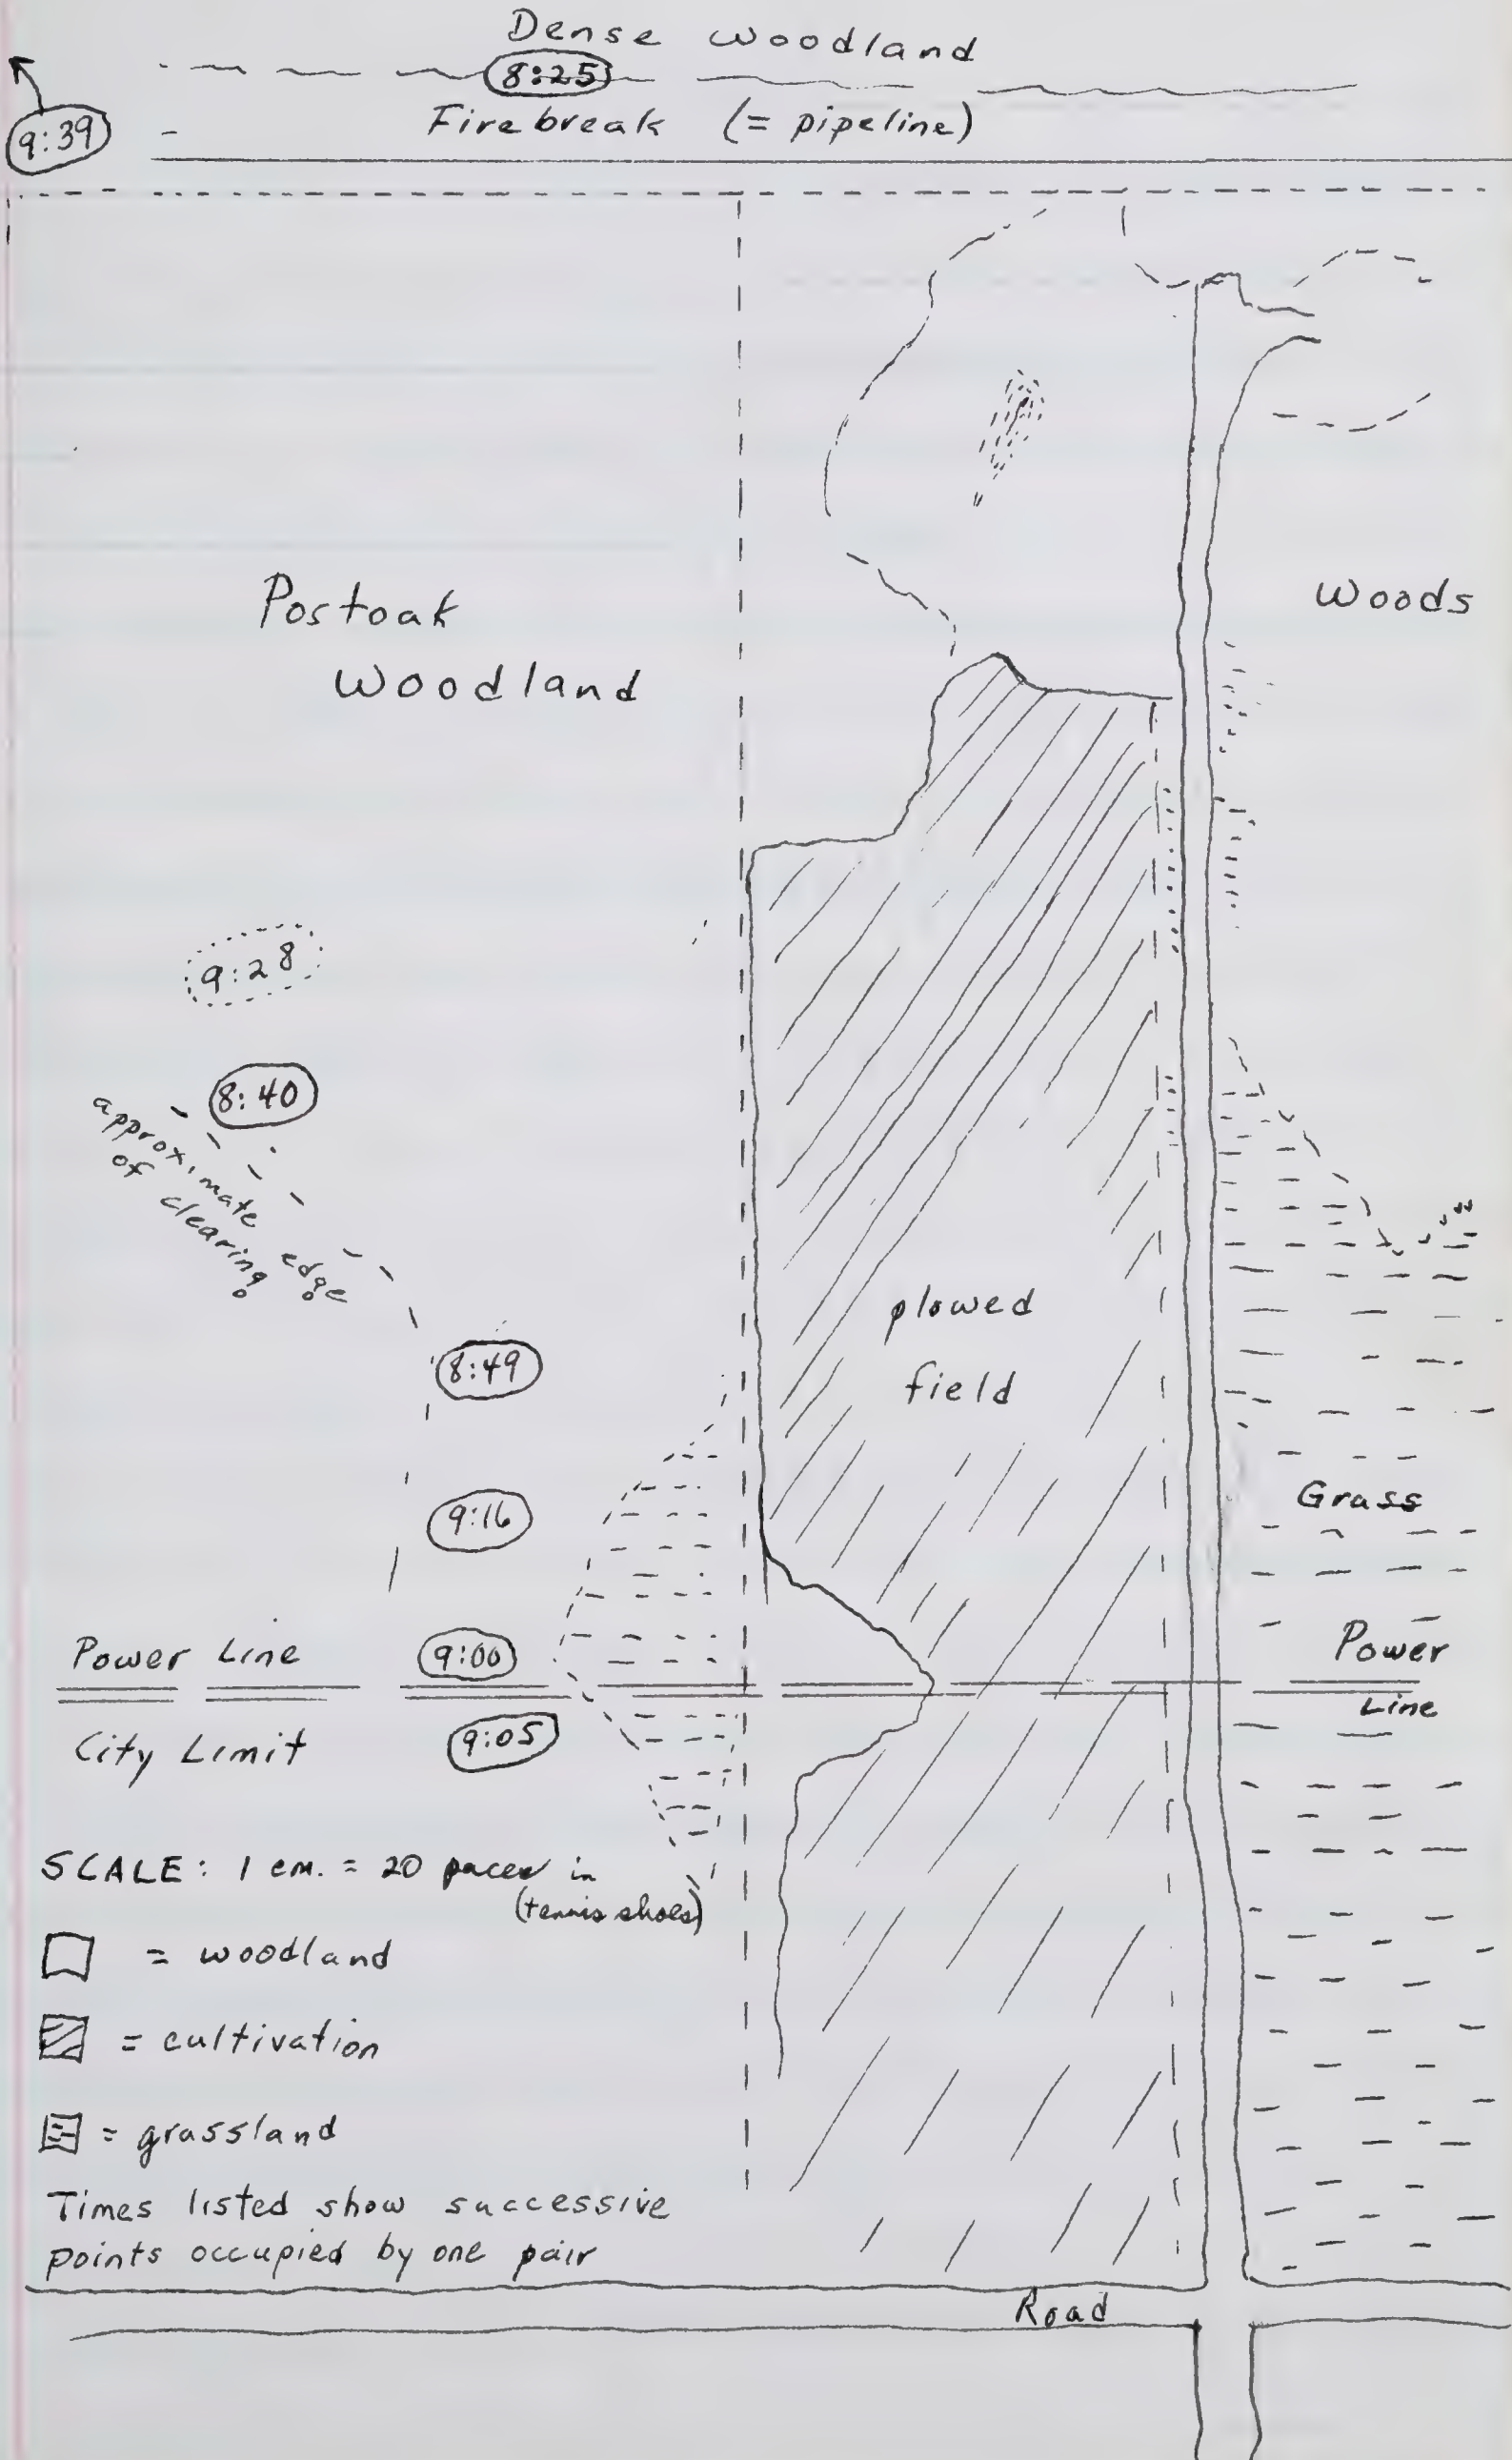 Dense woodland
8:25
Firebreak (= pipeline)
9:39
Postoak
Woodland
Woods
9:28
8:40
approximate edge
of clearing
8:49
plowed
field
9:16
Grass
Power Line
9:00
Power
Line
City Limit
9:05
SCALE: 1 cm. = 20 paces in
(tennis shoes)
= woodland
= cultivation
= grassland
Times listed show successive
points occupied by one pair
Road